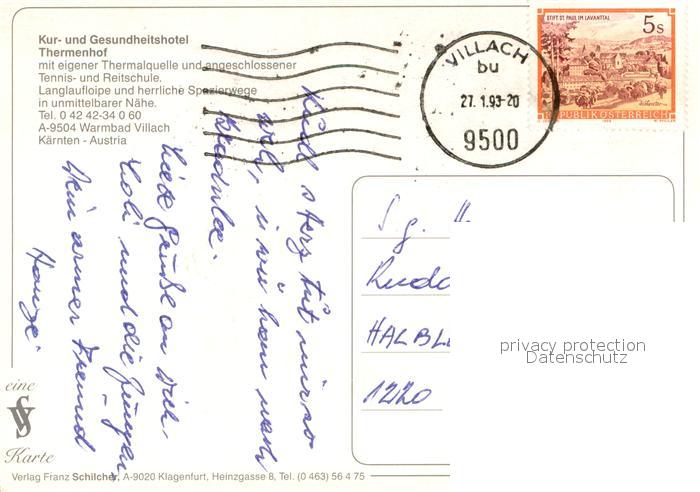 Kur- und Gesundheitshotel
Thermenhof
mit eigener Thermalquelle und angeschlossener
Tennis- und Reitschule.
Langlaufloipe und herrliche Spazierwege
in unmittelbarer Nähe.
Tel. 0 42 42-34 0 60
A-9504 Warmbad Villach
Kärnten - Austria
VILLACH
bu
27.1.93-20
9500
STIFT ST. PAUL IM LAVANTTAL
5s
REPUBLIK ÖSTERREICH
tut mir so
weh, i wü ham nach
Liebe Grüße an Dich,
und die Jungen
Dein armer Freund
S.g. H
HALBL
1220
privacy protection
Datenschutz
eine
Karte
Verlag Franz Schilcher, A-9020 Klagenfurt, Heinzgasse 8, Tel. (0 463) 56 4 75